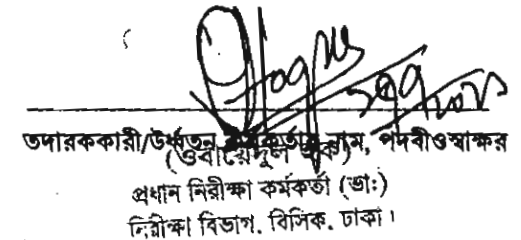 তদারককারী/উর্ধ্বতন কর্মকর্তার নাম, পদবীওস্বাক্ষর
(ওবায়েদুল হক)
প্রধান নিরীক্ষা কর্মকর্তা (ভাঃ)
নিরীক্ষা বিভাগ, বিসিক, ঢাকা।